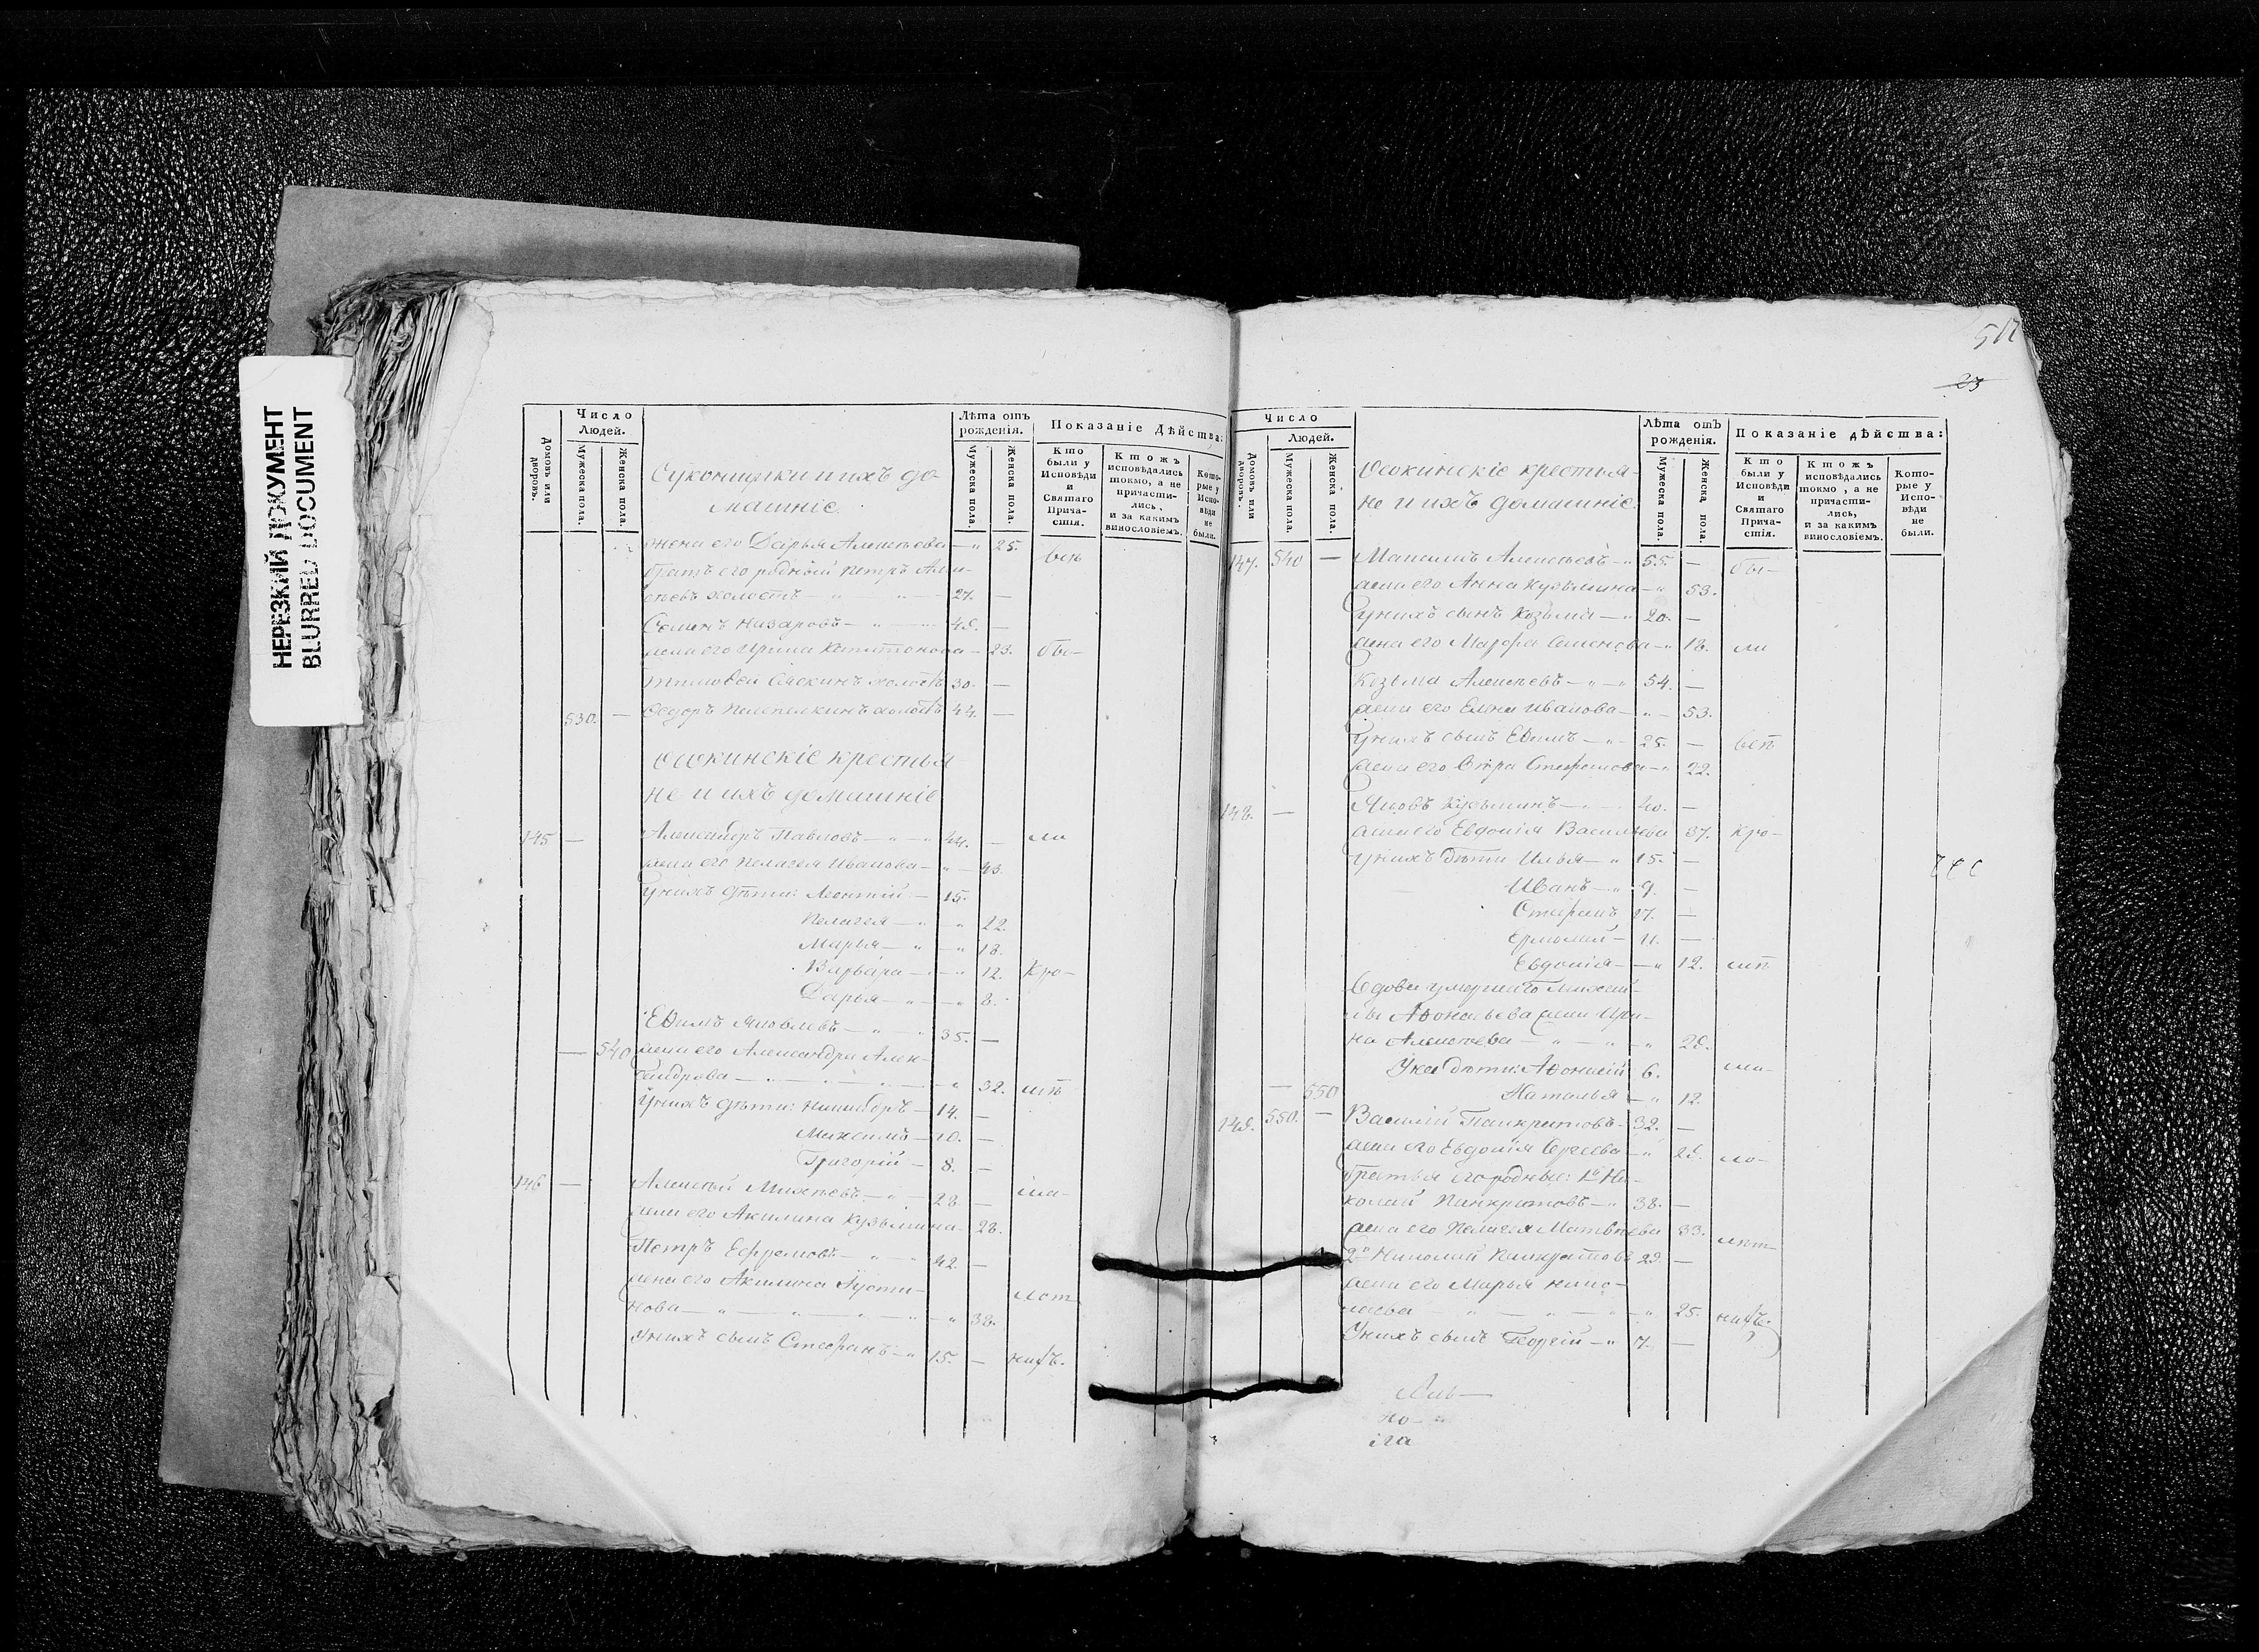 НЕРЕЗКИЙ ДОКУМЕНТ
BLURRED DOCUMENT
Число Людей.
Домовъ или дворовъ.
Мужеска пола.
Женска пола.
Суконщики и ихъ до-
машніе.
Лѣта отъ рожденія.
Мужеска пола.
Женска пола.
Показаніе Дѣйства:
Кто были у Исповѣди и Святаго Прича-стія.
Ктожъ исповѣдались токмо, а не причасти-лись, и за какимъ винословіемъ.
Кото-рые у Испо-вѣди не были.
жена его Дарья Алексѣева — 25.
братъ его родный Петръ Алек-
сѣевъ холостъ — 27. —
Семенъ Назаровъ — 49. —
жена его Ирина Капитонова — 23. бы-
Тимофей холостъ 30. —
530. — Ѳедоръ холостъ 44. —
Осокинскіе крестья-
не и ихъ домашніе
145 — Александръ Павловъ — 44. — ли
жена его Пелагея Иванова — 43.
у нихъ дѣти: Леонтій — 15.
Пелагея — 22.
Марья — 18.
Варвара — 12. Кро-
Дарья — 8.
Ефимъ Яковлевъ — 35. —
— 540 жена его Александра Алек-
сандрова — 32. мѣ
у нихъ дѣти: Никифоръ — 14. —
Михаилъ — 10. —
Григорій — 8. —
146 — Алексѣй Михѣевъ — 28 — ма-
жена его Акилина Кузьмина — 28.
Петръ Ефремовъ — 42. —
жена его Акилина Іусти-
нова — 38.
у нихъ сынъ Стефанъ — 15. — нихъ.
517
23
Число Людей.
Домовъ или дворовъ.
Мужеска пола.
Женска пола.
Осокинскіе крестья-
не и ихъ домашніе.
Лѣта отъ рожденія.
Мужеска пола.
Женска пола.
Показаніе дѣйства:
Кто были у Исповѣди и Святаго Прича-стія.
Ктожъ исповѣдались токмо, а не причасти-лись, и за какимъ винословіемъ.
Кото-рые у Испо-вѣди не были.
147. 540 — Алексѣевъ — 55. — бы-
жена его Анна Кузьмина — 53.
у нихъ сынъ Козьма — 20. —
жена его Марфа Семенова — 18. ли
Козьма Алексѣевъ — 54. —
жена его Елена Иванова — 53.
у нихъ сынъ Ефимъ — 25. — всѣ
жена его Стефанова — 22.
148. — Яковъ Кузьминъ — 40. —
жена его Евдокія Васильева 37. Кро-
у нихъ дѣти Илья — 15. —
Иванъ — 9. —
Стефанъ 17. —
Ермолай — 11. —
Евдокія — 12. мѣ
Вдова умершаго Михаи-
ла Афонасьева жена Ири-
на Алексѣева — 29.
У ка дѣти: Афонасій 6. ма-
— 550 Наталья — 12.
149. 550. — Василій Панкратовъ — 32. —
жена его Евдокія Сергеева — 29. ло-
братья его родные: 1й Ни-
колай Панкратовъ — 38. —
жена его Пелагея Матвѣева 33. лѣт
2й Николай Панкратовъ 29. —
жена его Марья Нико-
лаева — 25. нихъ.
У нихъ сынъ Георгій — 7. —
но-